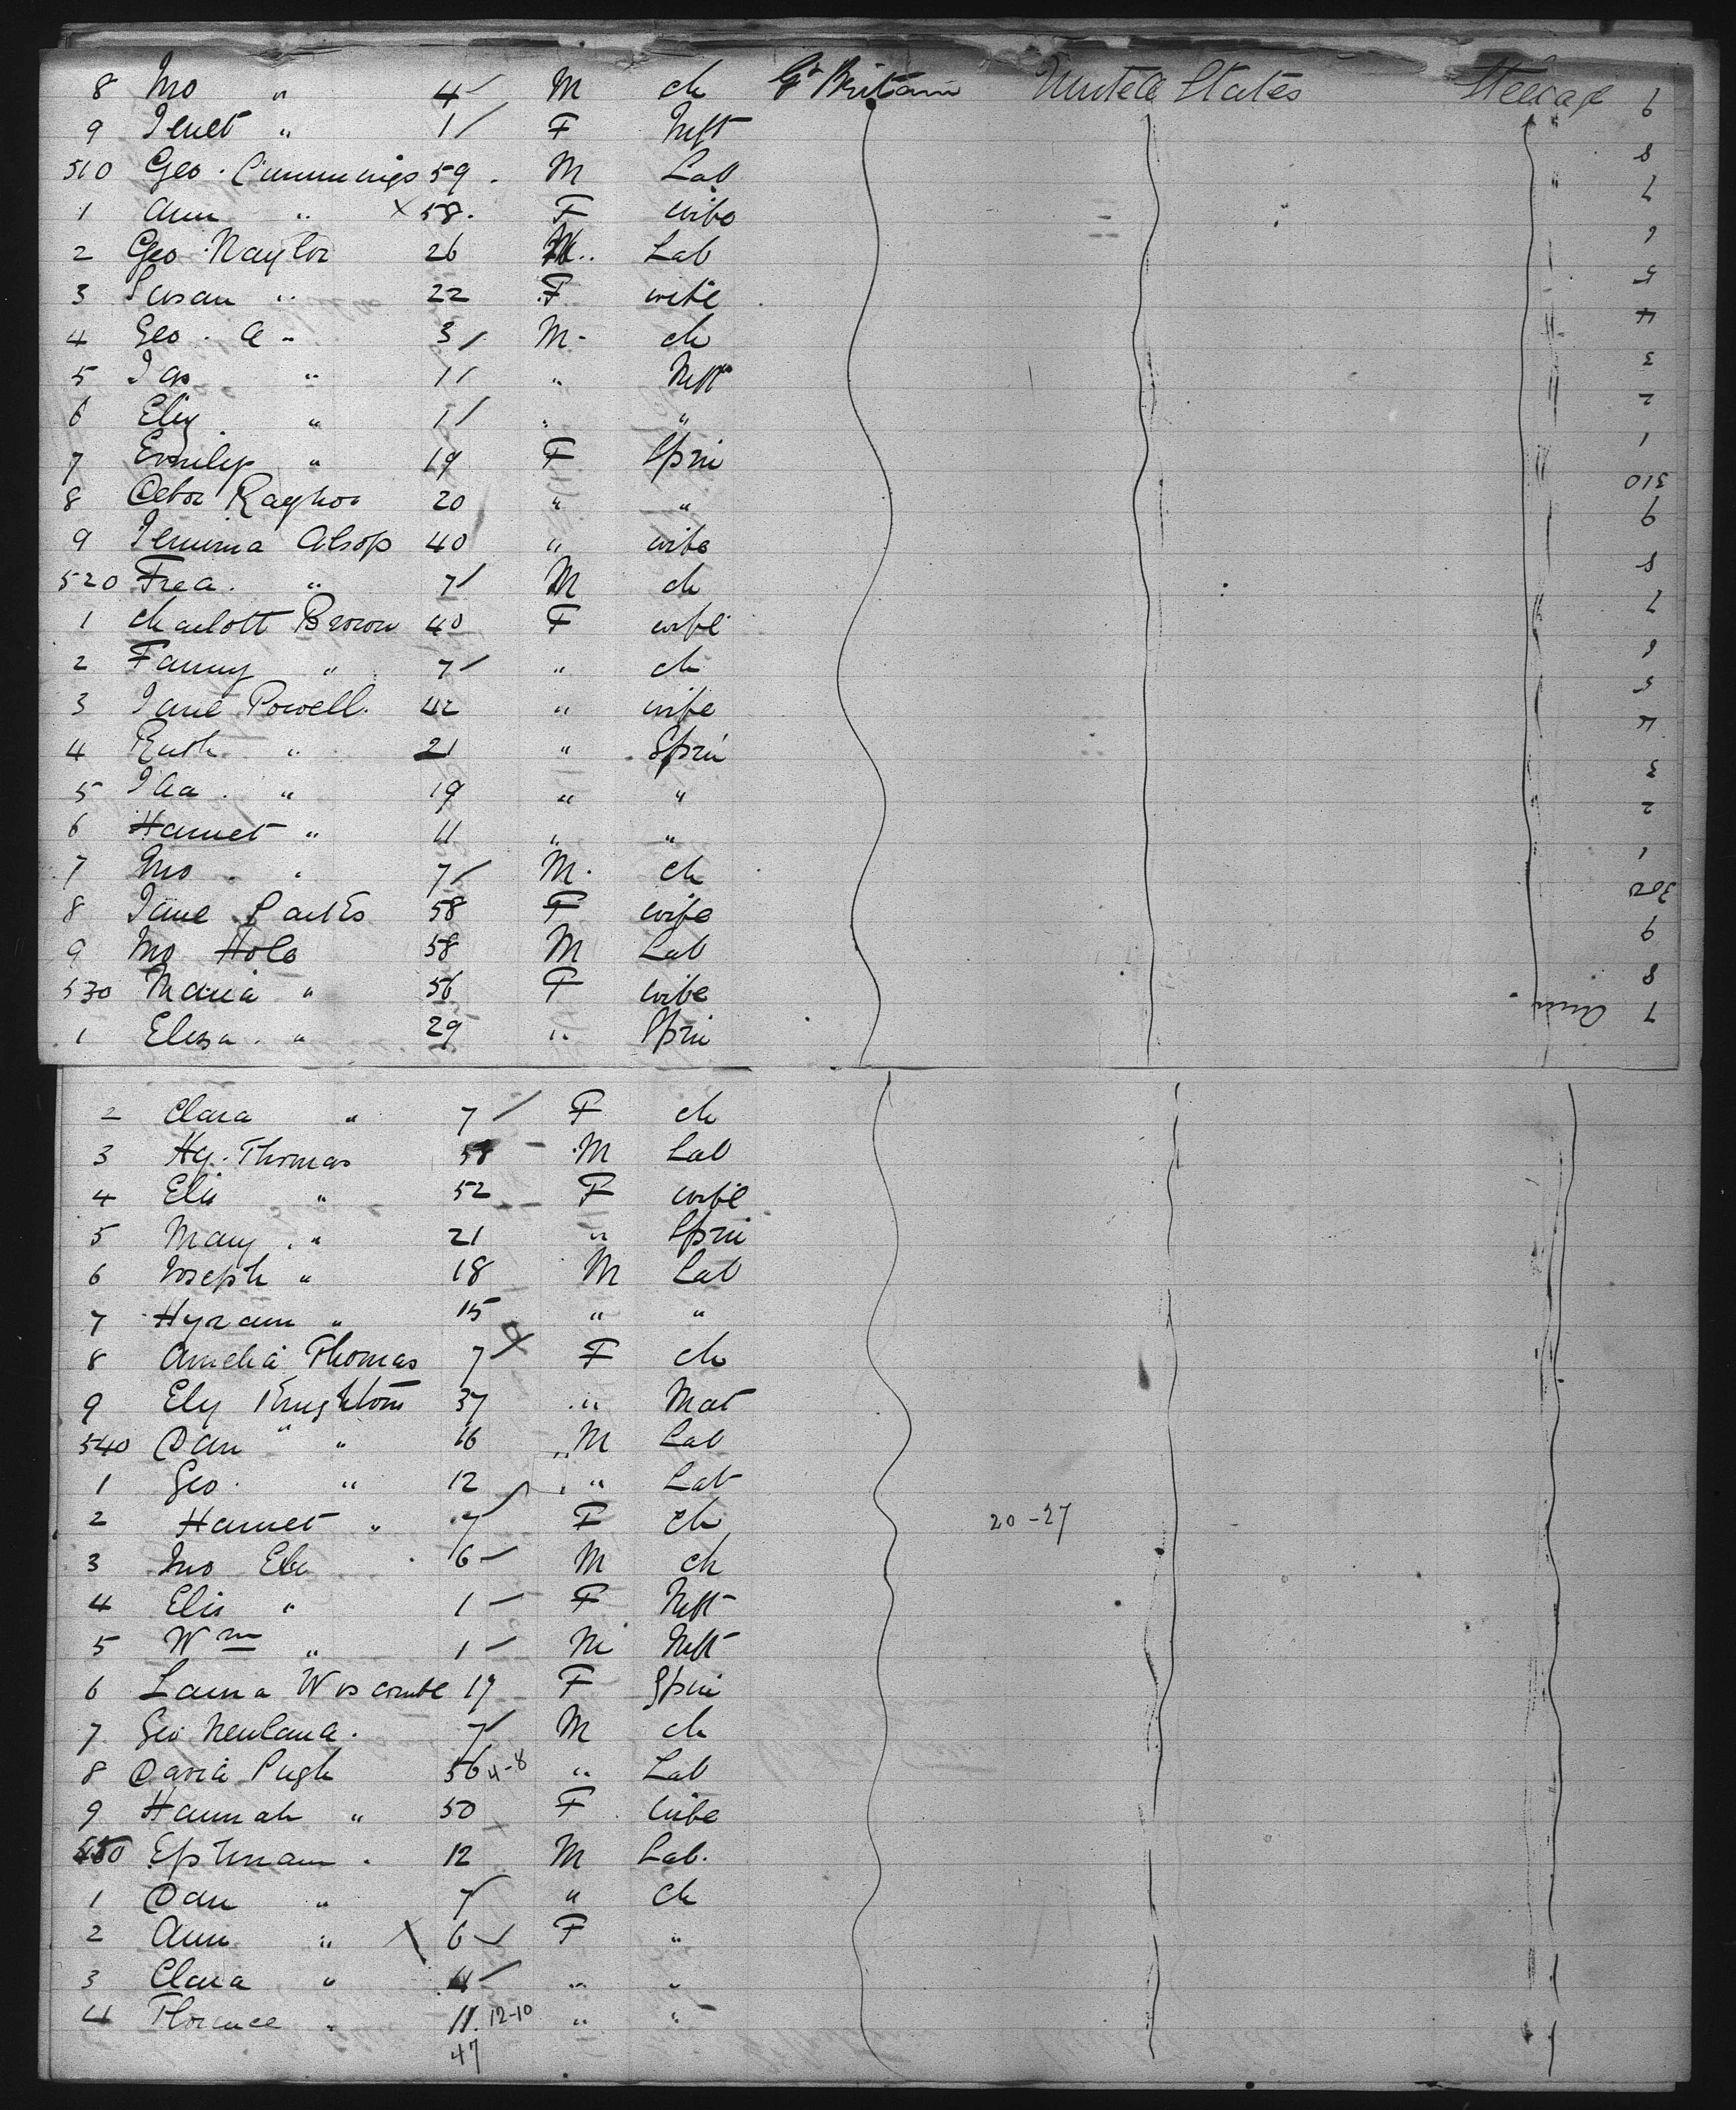 8 Jno " 4 M ch Gt Britain United States Steerage
9 Jenet " 1 F Inft
510 Geo. Cummings 59 M Lab
1 Ann " 58 F wife
2 Geo Naylor 26 M Lab
3 Susan " 22 F wife
4 Geo. A " 3 M ch
5 Jas " 1 " Inft
6 Eliz " 1 " "
7 Emily " 19 F Spin
8 Raynor 20 " "
9 Jemima Alsop 40 " wife
520 Fred. " 7 M ch
1 Charlott Brown 40 F wife
2 Fanny " 7 " ch
3 Jane Powell 42 " wife
4 Ruth " 21 " Spin
5 Ida " 19 " "
6 Harriet " 11 " "
7 Jno " 7 M ch
8 Jane 58 F wife
9 Jno Hole 58 M Lab
530 Maria " 56 F wife
1 Eliza " 29 " Spin
2 Clara " 7 F ch
3 Hy. Thomas 58 M Lab
4 Eliz " 52 F wife
5 Mary " 21 " Spin
6 Joseph " 18 M Lab
7 Hyram " 15 " "
8 Amelia Thomas 7 F ch
9 Ely 37 " Mat
540 Dan " " 16 M Lab
1 Geo. " 12 " Lab
2 Harriet " 7 F ch 20-27
3 Jno 6 M ch
4 Eliz " 1 F Inft
5 Wm " 1 M Inft
6 Laura Wiscombe 19 F Spin
7 Geo Newland. 7 M ch
8 David Pugh 56 4-8 " Lab
9 Hannah " 50 F wife
550 12 M Lab.
1 Dan " 7 " ch
2 Ann " 6 F "
3 Clara " 4 " "
4 Florence " 11. 12-10 " "
47